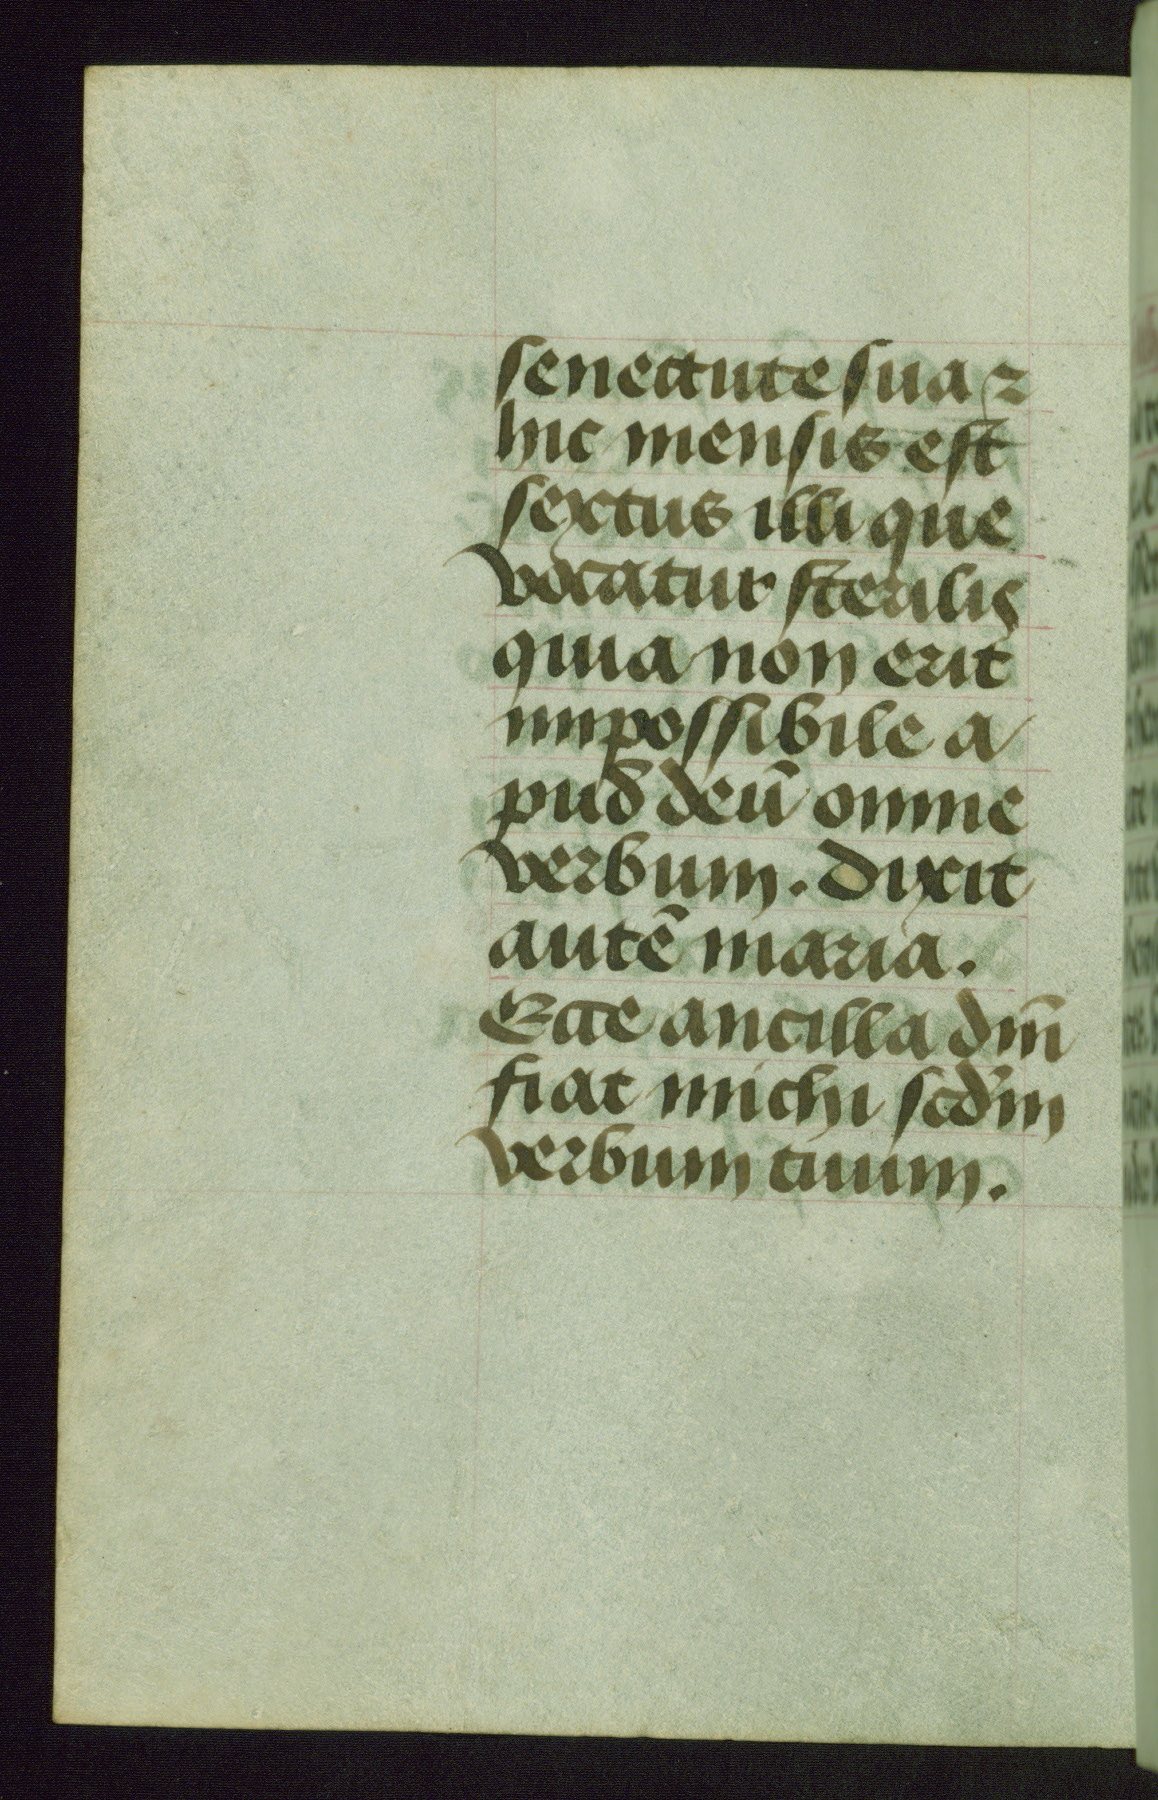 senectute sua ⁊
hic mensis est
sextus illi que
vocatur sterilis
quia non erit
impossibile a
pud deū omne
verbum. Dixit
autē maria.
Ecce ancilla dn̄i
fiat michi scd̄m
verbum tuum.